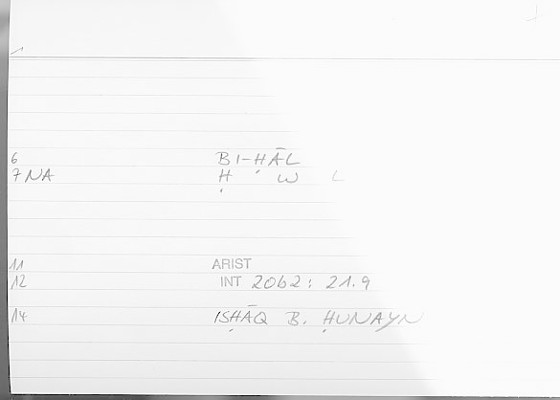 1
6 BI-ḤĀL
7 NA Ḥ W L
11 ARIST
12 INT 2062: 21.9
14 ISḤĀQ B. ḤUNAYN